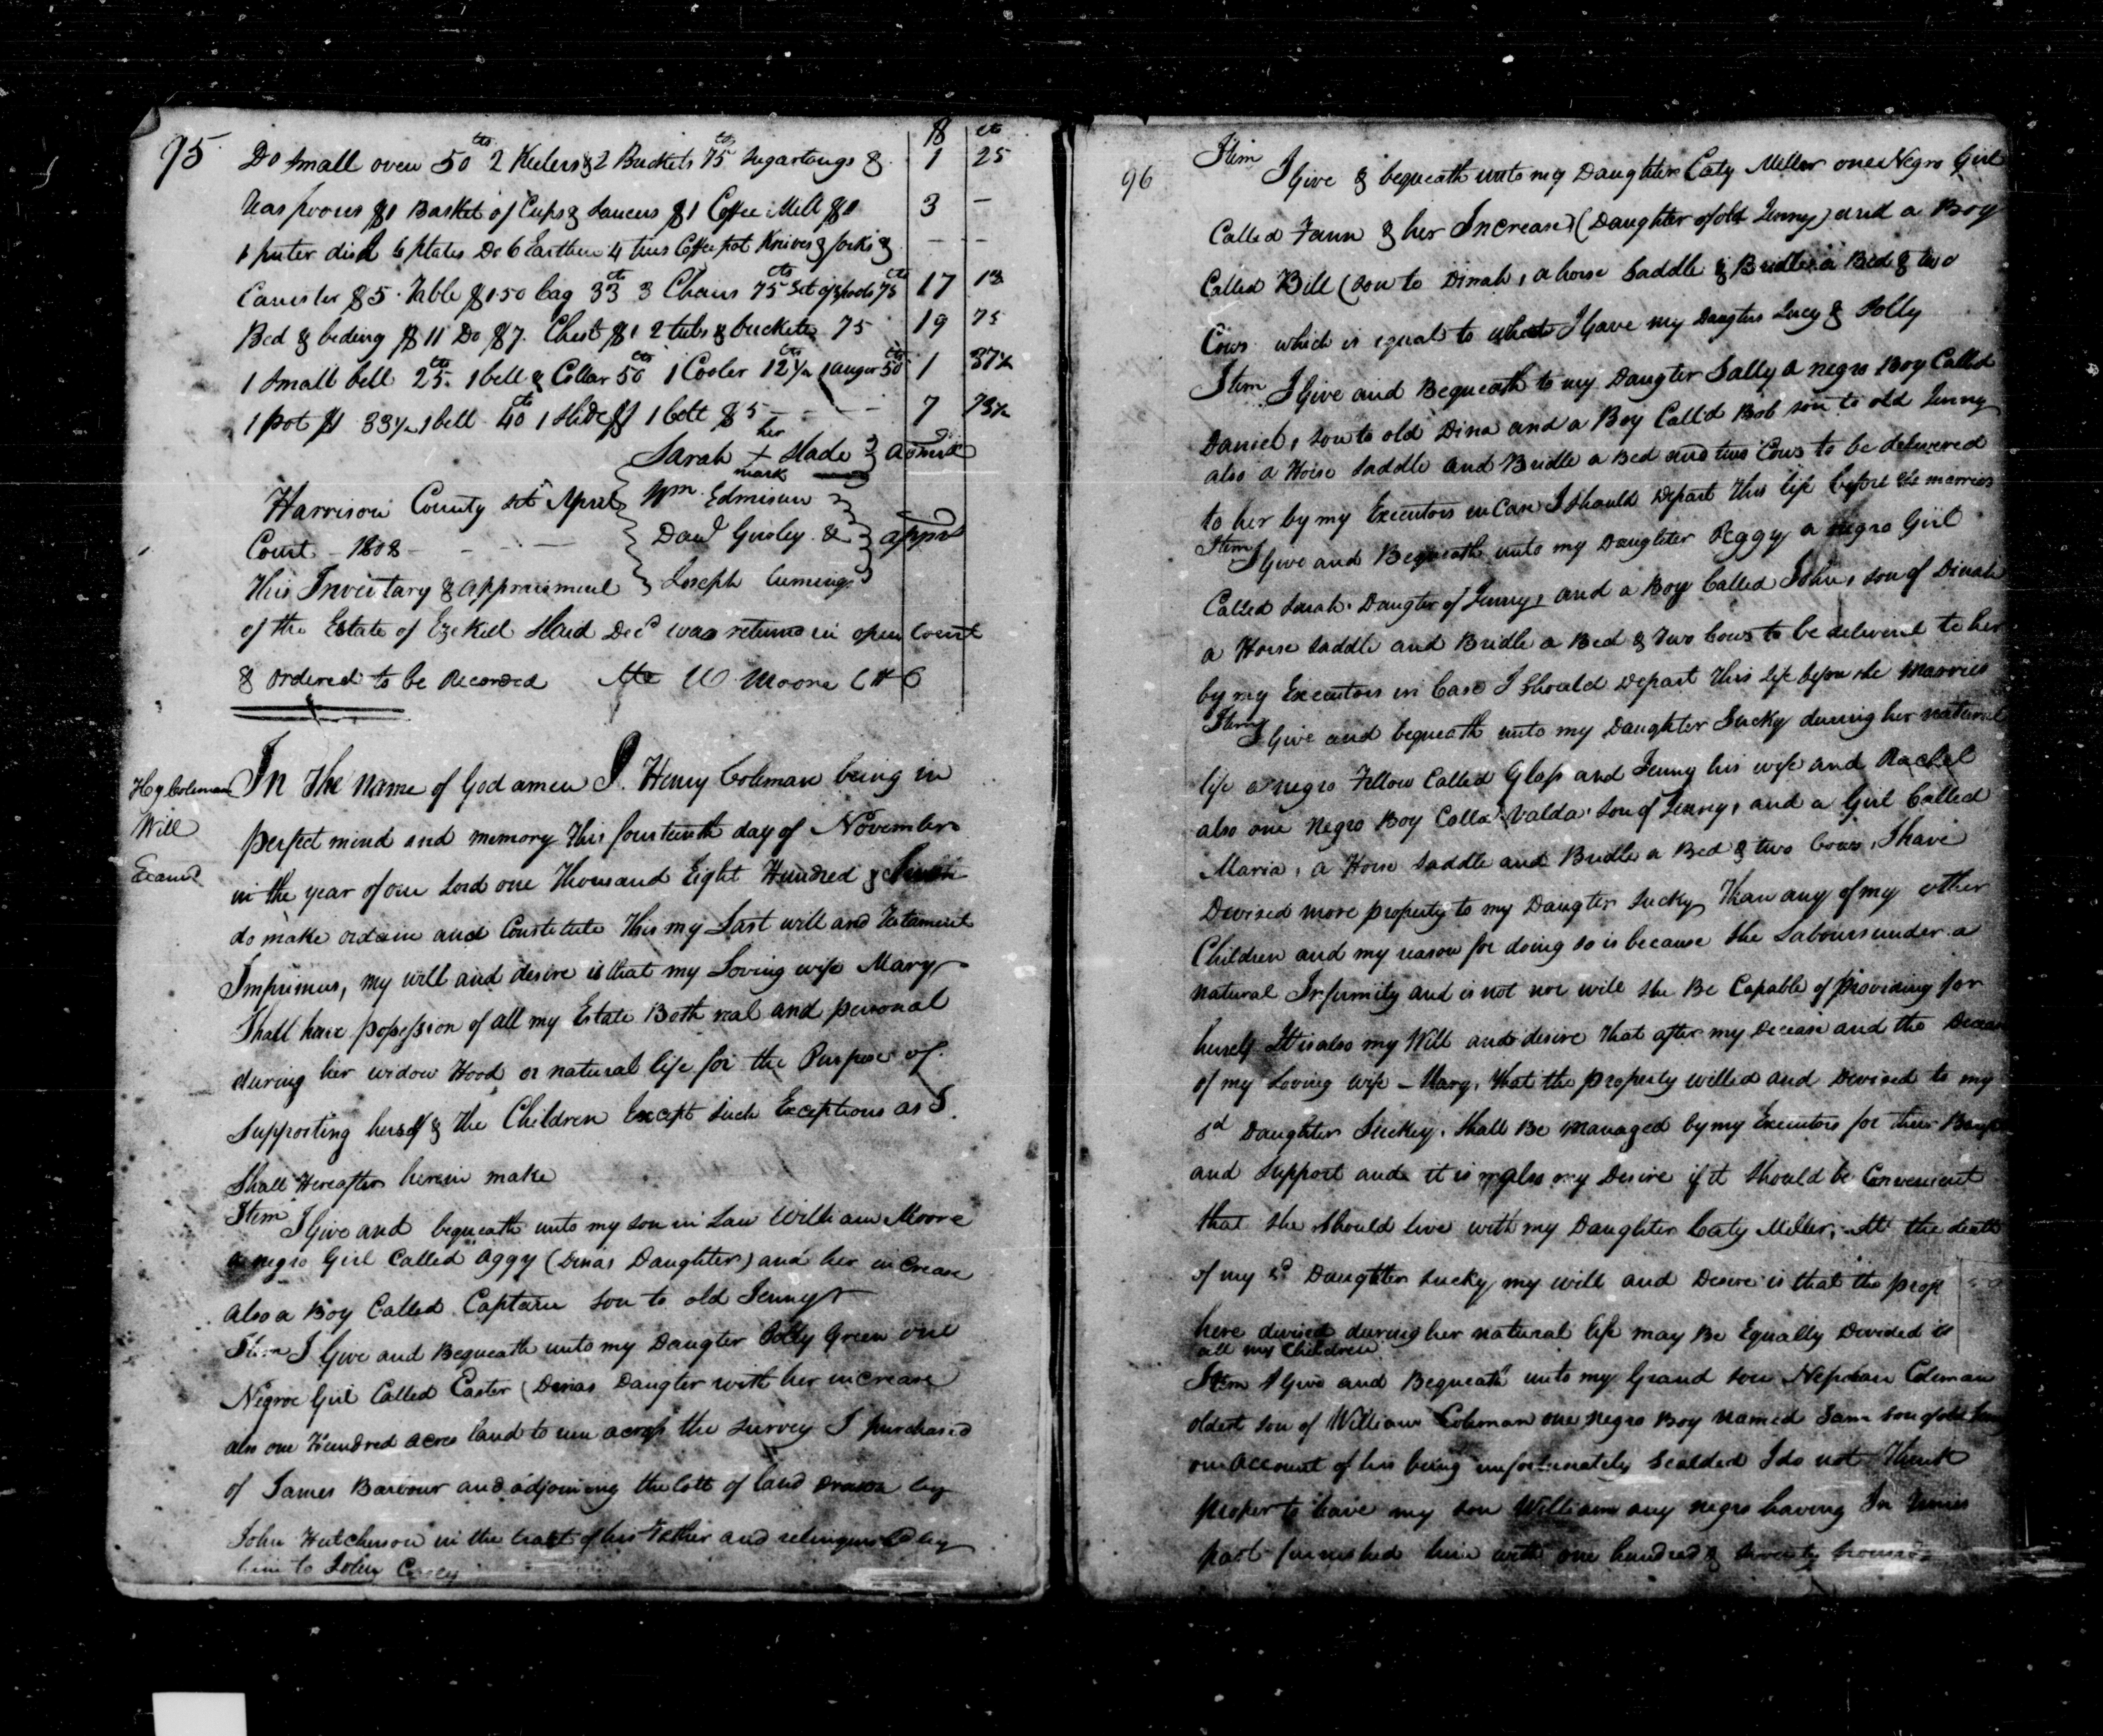 95
$ cts
Do small oven 50 cts 2 Keelers & 2 Buckets 75 cts Sugartongs & 1 25
Teaspoons $1 Basket of Cups & Saucers $1 Coffee Mill $1 3 —
1 puter dish 6 plates Do 6 Earthen 4 tins Coffee pot Knives & forks & — —
Canister $5. Table $1.50 Cag 33 cts 3 Chairs 75 cts Set of spools 75 cts 17 13
Bed & beding $11 Do $7. Chest $1 2 tubs & buckets 75 19 75
1 Small bell 25 cts 1 bell & Collar 50 cts 1 Cooler 12½ cts 1 auger 50 cts 1 37½
1 pot $1 33½ 1 bell 40 cts 1 Slide $1 1 bett $5 - - - - 7 73½
Sarah her X mark Slade } admx
Harrison County sct April Wm. Edmison
Court - 1808 - - - - Danl Gosley & } apprs
This Inventary & appraisment Joseph Cuming
of the Estate of Ezekiel Slaid Decd was returnd in open Court
& ordered to be Recorded Atte W Moore C H C
Hy Coleman
Will
Examd
In the name of God amen I. Henry Coleman being in
perfect mind and memory This fourteenth day of November
in the year of our Lord one Thousand Eight Hundred &
do make ordain and Constitute This my Last will and Testament
Imprimus, my will and desire is that my Loving wife Mary
Shall have possession of all my Estate Both real and personal
during her widow Hood or natural life for the Purpose of
Supporting herself & the Children Except such Exceptions as I
Shall Hereafter herein make
Item I Give and bequeath unto my son in Law William Moore
a negro Girl Called Aggy (Dinas Daughter) and her increase
also a Boy Called Captain son to old Jenny
Item I Give and Bequeath unto my Daugter Polly Green one
Negroe Girl Called Easter (Dinas Daugter with her increase
also one Hundred acres land to run across the survey I purchased
of James Barbour and adjoining the lott of land drawn by
John Hutcherson in the tract of his Father and relinquished by
him to John
96
Item I Give & bequeath unto my Daughter Caty Miller one Negro Girl
Called Fann & her Increase (Daughter of old Jenny) and a Boy
Called Bill (son to Dinah, a horse Saddle & Bridle a Bed & two
Cows which is equal to what I Gave my Daugters Lucy & Polly
Item I Give and Bequeath to my Daugter Sally a negro Boy Called
Daniel, son to old Dina and a Boy Calld Bob son to old Jenny
also a Horse Saddle and Bridle a Bed and two Cows to be delivered
to her by my Executors in Case I should Depart This life before she marries
Item I Give and Bequeath unto my Daughter Peggy a negro Girl
Called Sarah. Daugter of Jenny, and a Boy Called John, son of Dinah
a Horse Saddle and Bridle a Bed & Two Cows to be deliverd to her
by my Executors in Case I should Depart This Life before she Marries
Item I Give and bequeath unto my Daughter Sucky during her natural
life a negro Fellow Called Glass and Jenny his wife and Rachel
also one Negro Boy Calld Valda son of Jenny, and a Girl Called
Maria, a Horse Saddle and Bridle a Bed & two Cows, I have
Devised more property to my Daugter Sucky Than any of my other
Children and my reason for doing so is because she Labours under a
natural Infirmity and is not nor will she Be Capable of Providing for
herself It is also my Will and desire That after my Decease and the
of my Loving wife - Mary, that the property willed and Devised to my
sd Daughter Suckey. Shall Be Managed by my Executors for their
and Support and it is also my Desire if it should be Convenient
that she should live with my Daughter Caty Miller, At the death
of my sd Daughter Sucky my will and Desire is that the prop
here devised during her natural life may Be Equally Divided
all my Children
Item I Give and Bequeath unto my Grand son Coleman
oldest son of William Coleman one negro Boy named Sam son of old
on account of his being unfortunately Scalded I do not Think
proper to leave my son William any negro having In times
past furnished him with one hundred & seventy pounds